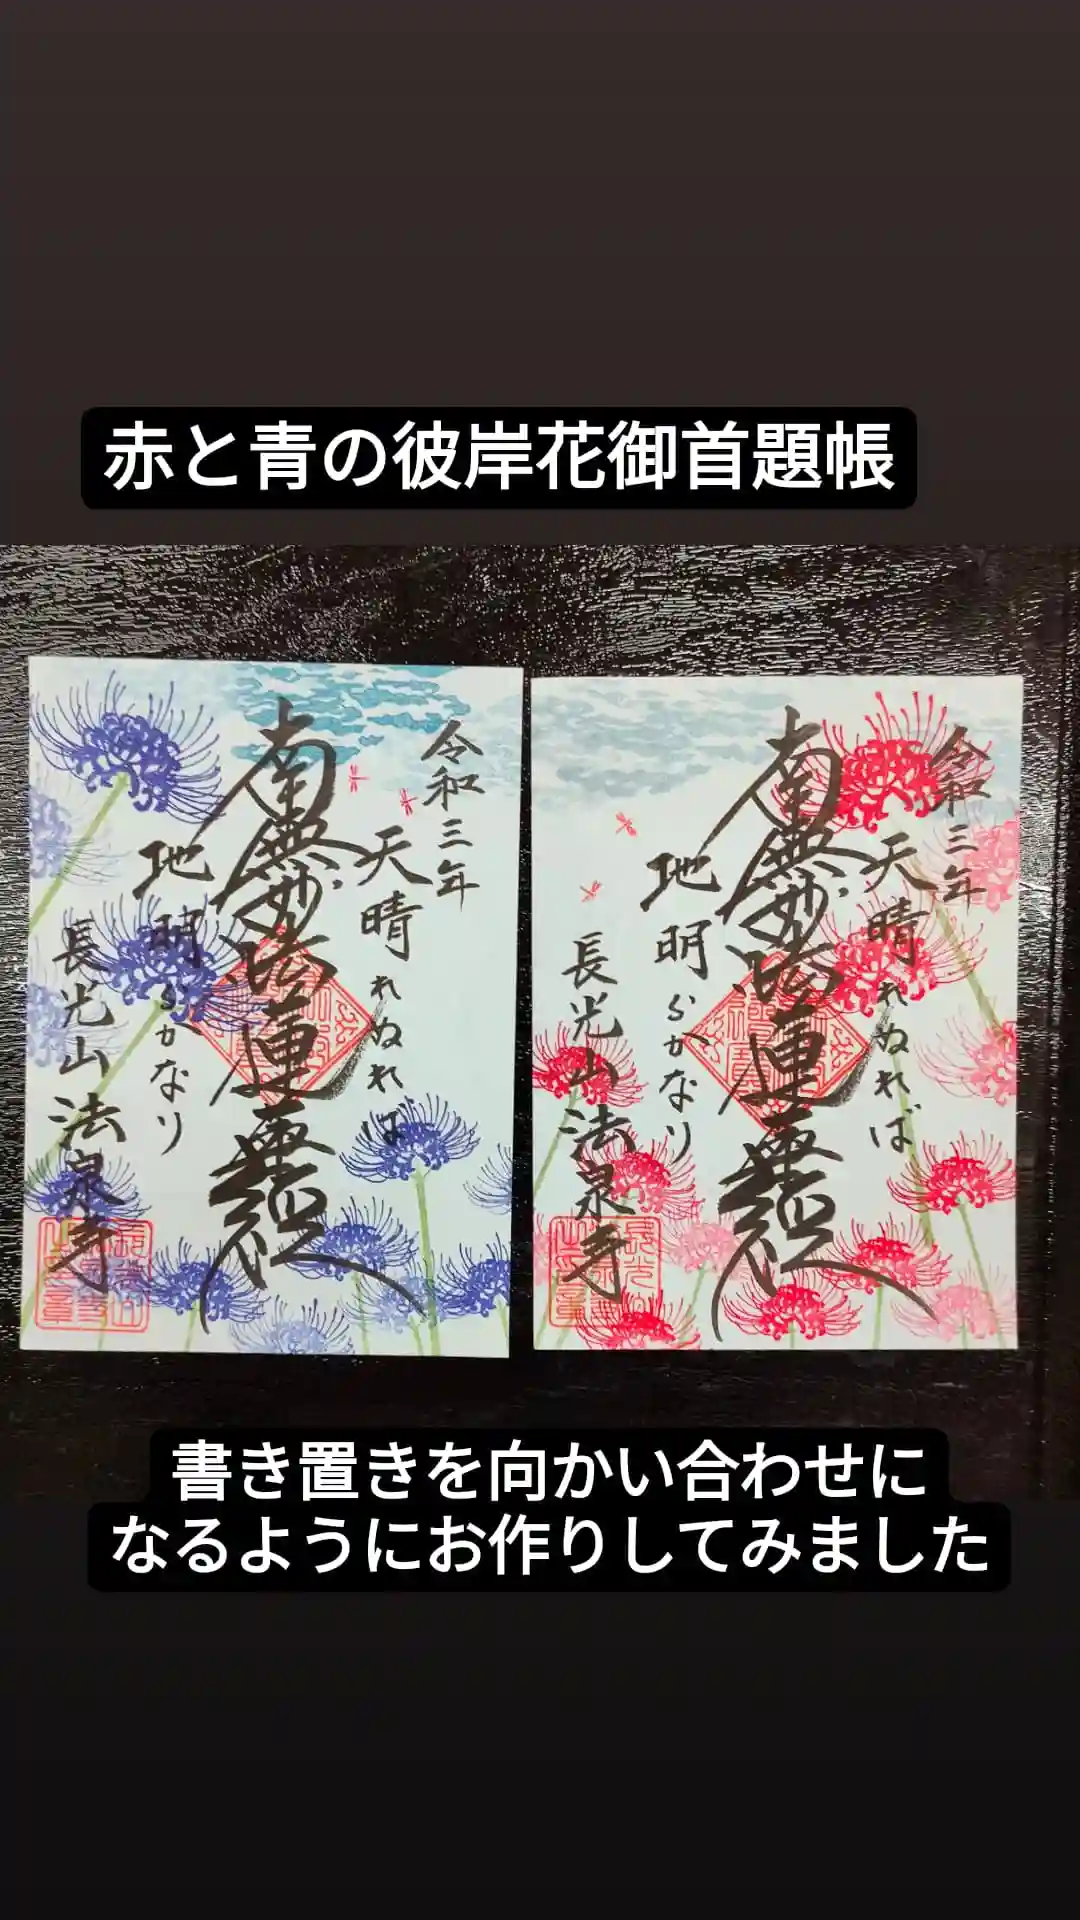 赤と青の彼岸花御首題帳
令和三年
天晴れぬれば
南無妙法蓮華経
地明らかなり
長光山法泉寺
令和三年
天晴れぬれば
南無妙法蓮華経
地明らかなり
長光山法泉寺
書き置きを向かい合わせに
なるようにお作りしてみました